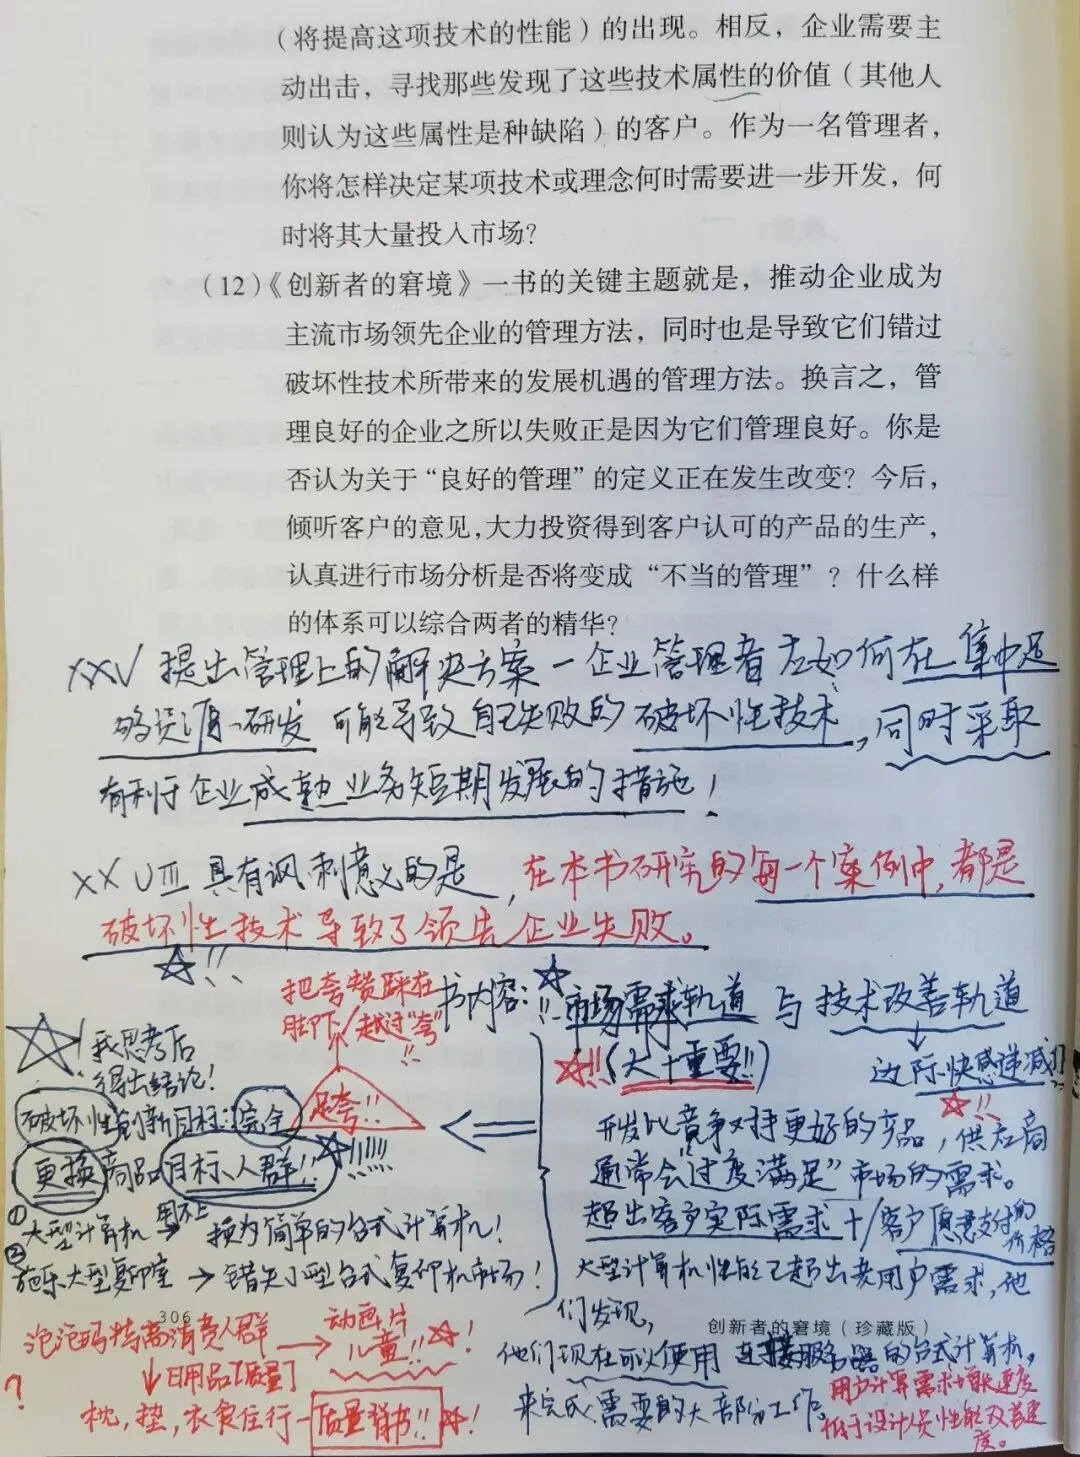 （将提高这项技术的性能）的出现。相反，企业需要主
动出击，寻找那些发现了这些技术属性的价值（其他人
则认为这些属性是种缺陷）的客户。作为一名管理者，
你将怎样决定某项技术或理念何时需要进一步开发，何
时将其大量投入市场？
（12）《创新者的窘境》一书的关键主题就是，推动企业成为
主流市场领先企业的管理方法，同时也是导致它们错过
破坏性技术所带来的发展机遇的管理方法。换言之，管
理良好的企业之所以失败正是因为它们管理良好。你是
否认为关于“良好的管理”的定义正在发生改变？今后，
倾听客户的意见，大力投资得到客户认可的产品的生产，
认真进行市场分析是否将变成“不当的管理”？什么样
的体系可以综合两者的精华？
XXV 提出管理上的解决方案—企业管理者如何在集中足
够资源研发可能导致自己失败的破坏性技术，同时采取
有利于企业成熟业务短期发展的措施！
XXVIII 具有讽刺意义的是，在本书研究的每一个案例中，都是
破坏性技术导致了领先企业失败。
把夸赞踩在
脚下/越过“夸”
跨!!
书内容：!!市场需求轨道 与 技术改善轨道
!!!(大十重要!!)
边际快感递减
!!
开发比竞争对手更好的产品，供应商
通常会“过度满足”市场的需求。
超出客户实际需求+/客户愿意支付的
价格
大型计算机性能已超出老用户需求，他
们发现，
他们现在可以使用连接服务器的台式计算机，
来完成需要的大部分工作。
用户计算需求增长速度
低于设计人员性能改善速
度。
我思考后
得出结论！
破坏性创新目标：完全
更换商品目标人群!!!!!!!
①大型计算机 用不上→ 换为简单的台式计算机！
②施乐大型复印室→错失小型台式复印机市场！
306
创新者的窘境（珍藏版）
泡泡玛特高消费人群→动画片
儿童!!!
↓日用品[质量]
?
枕，垫，衣食住行—质量背书!!!